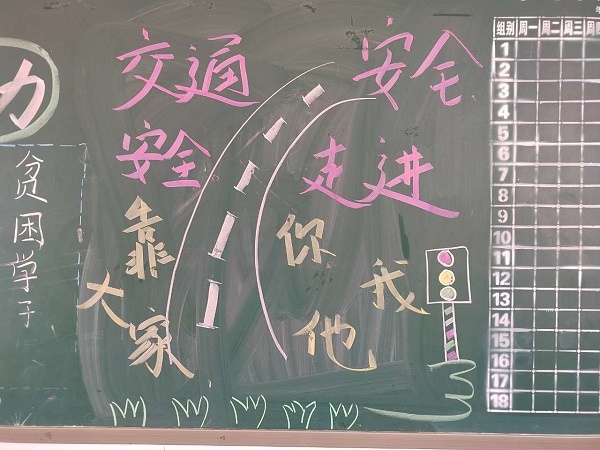 力
贫困学子
交通
安全
靠
大
家
安全
走进
你
我
他
年
组别 周一 周二 周三 周四
1
2
3
4
5
6
7
8
9
10
11
12
13
14
15
16
17
18